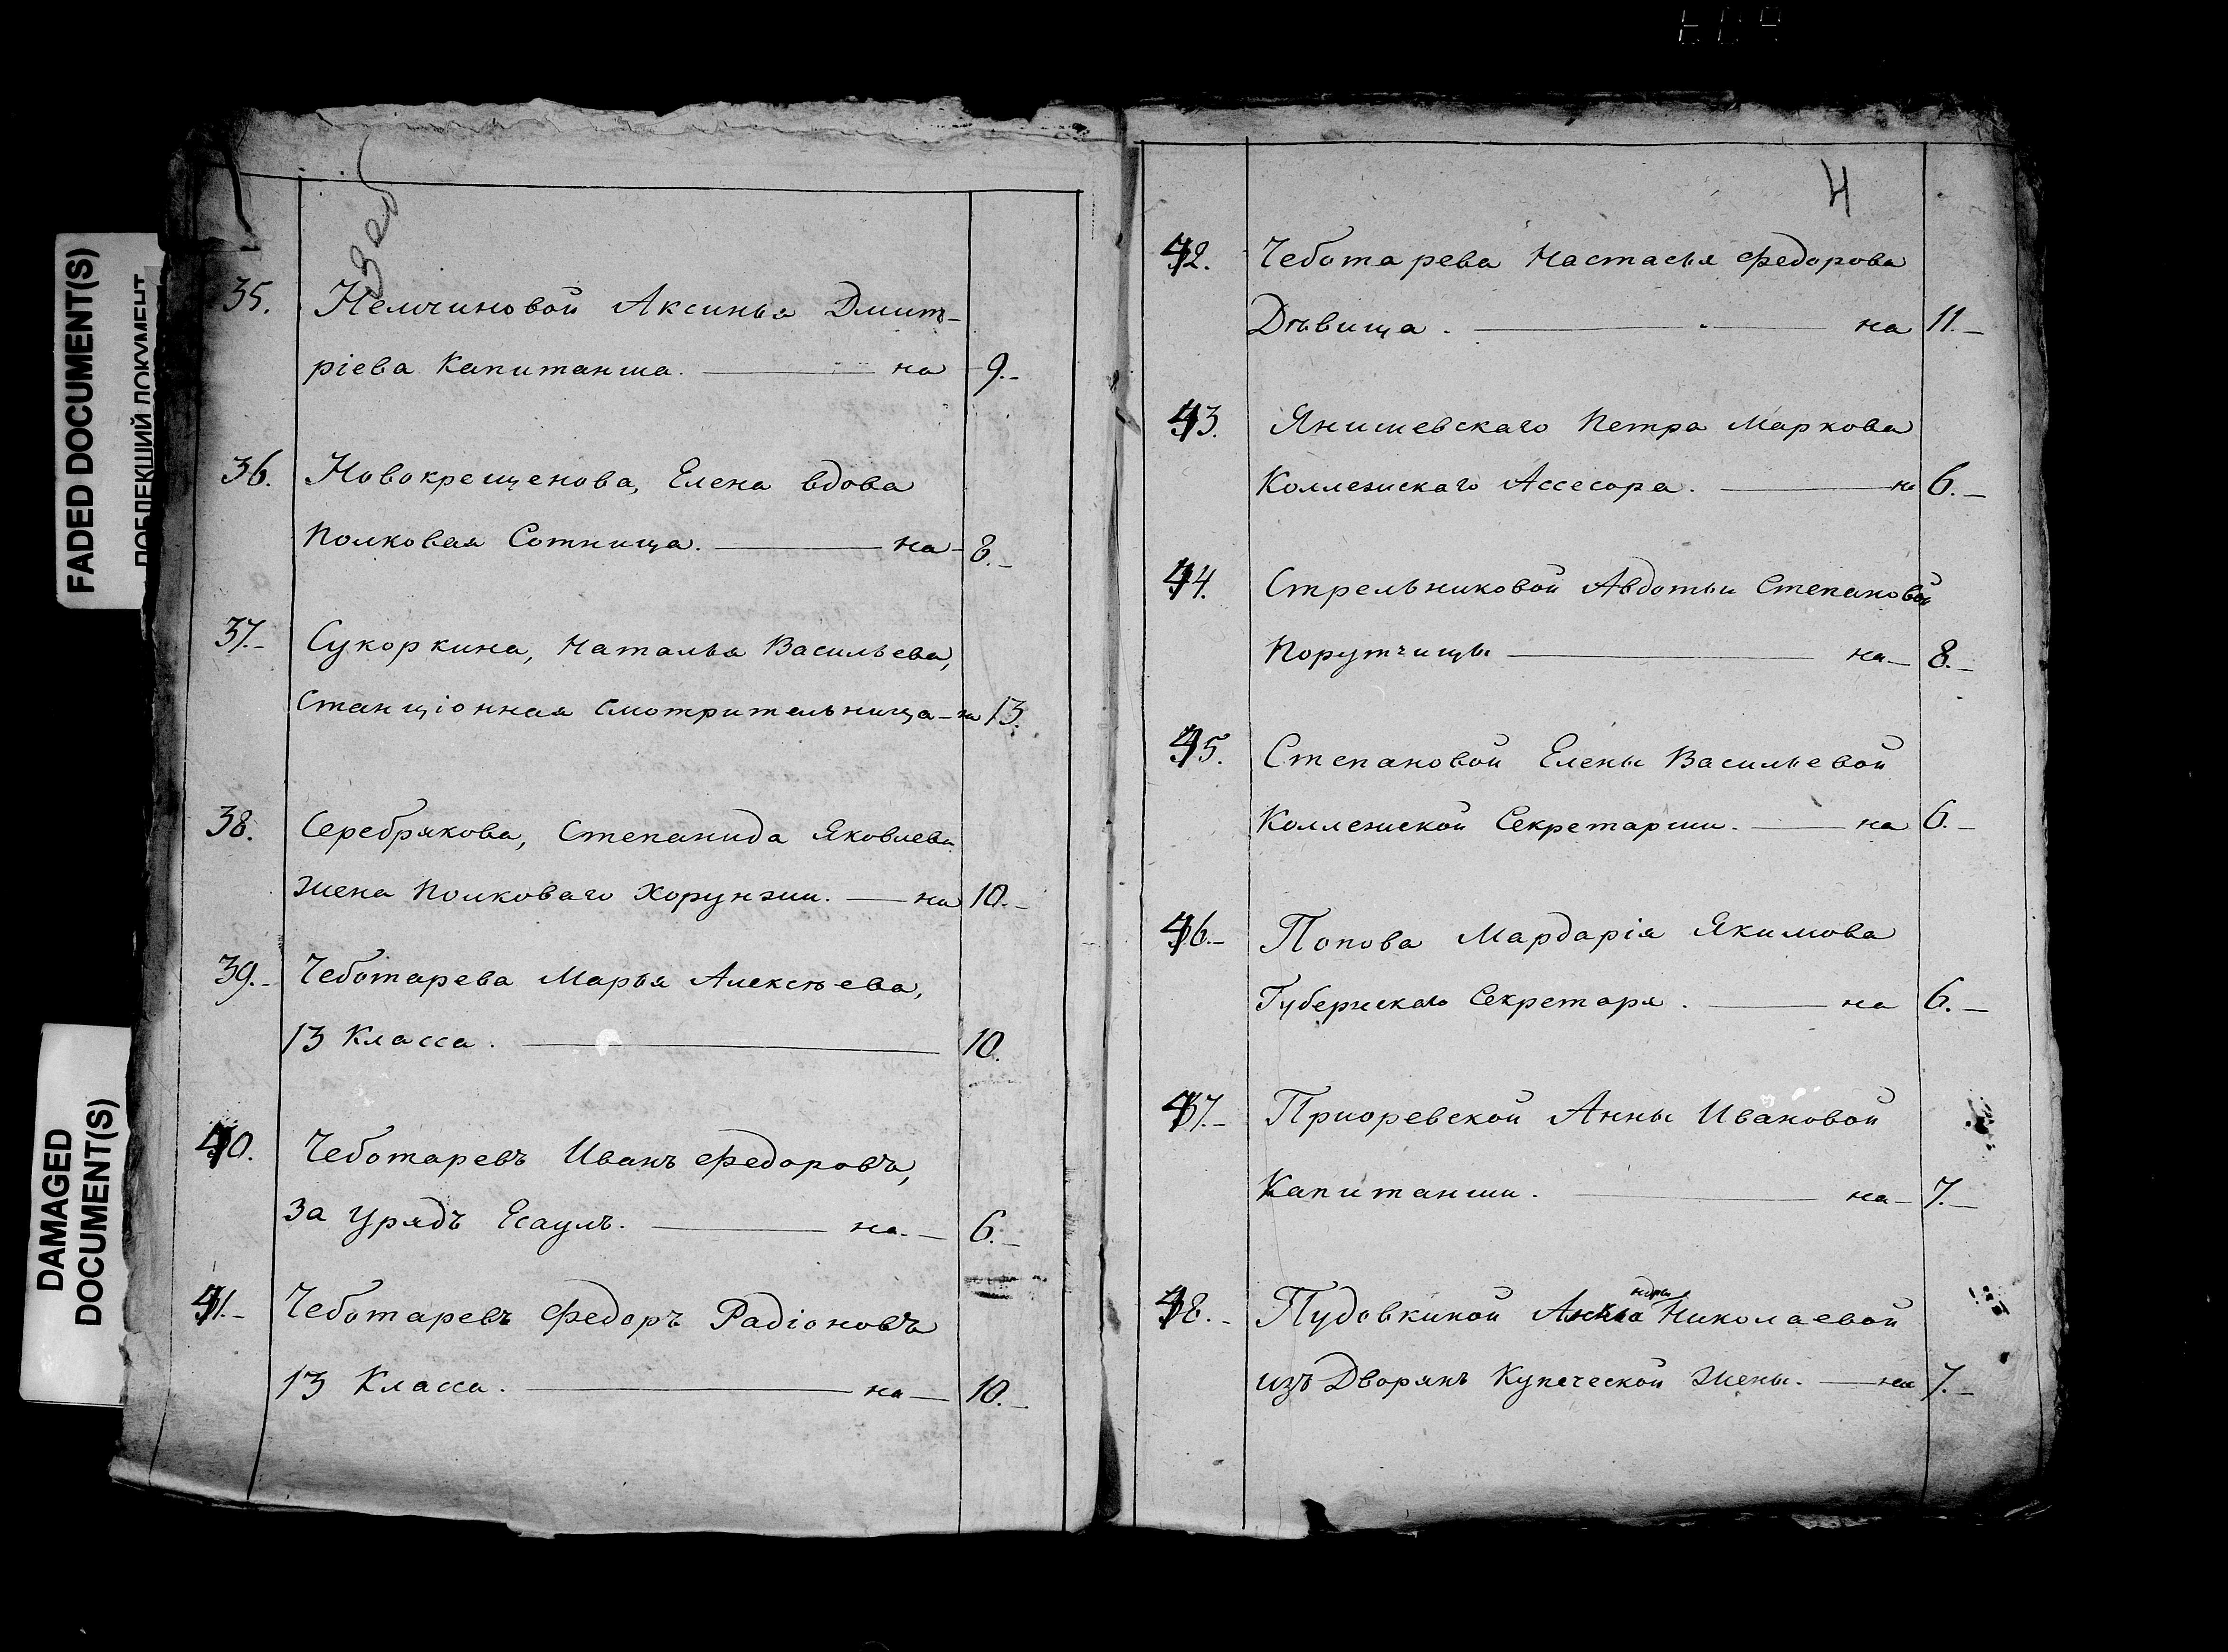 FADED DOCUMENT(S)
ПОБЛЕКШИЙ ДОКУМЕНТ
DAMAGED
DOCUMENT(S)
35. Немчиновой Аксинья Дмит-
ріева Капитанша. — на 9.-
36. Новокрещенова, Елена вдова
Полковая Сотница. — на - 8.-
37.- Сукоркина, Наталья Васильева,
Станціонная Смотрительница - на 13.
38. Серебрякова, Степанида Яковлева
жена Полковаго Хорунжии. — на 10.-
39.- Чеботарева Марья Алексѣева,
13 Класса. — 10.
40. Чеботаревъ Иванъ Федоровъ,
За урядъ Есаулъ. — на. — 6.-
41.- Чеботаревъ Федоръ Радіоновъ
13 Класса. — на — 10.-
4
42. Чеботарева Настасья Федорова
Дѣвица. — на 11.-
43. Янишевскаго Петра Маркова
Коллежскаго Ассесора. — на 6.-
44. Стрельниковой Авдотьи Степановой
Порутчицы — на - 8.-
45. Степановой Елены Васильевой
Коллежской Секретарши. — на 6.-
46.- Попова Мардарія Якимова
Губернскаго Секретаря. — на 6.-
47.- Приоревской Анны Ивановой
Капитанши. — на - 7.-
48.- Пудовкиной Николаевой
изъ Дворянъ Купеческой жены. — на 7.-